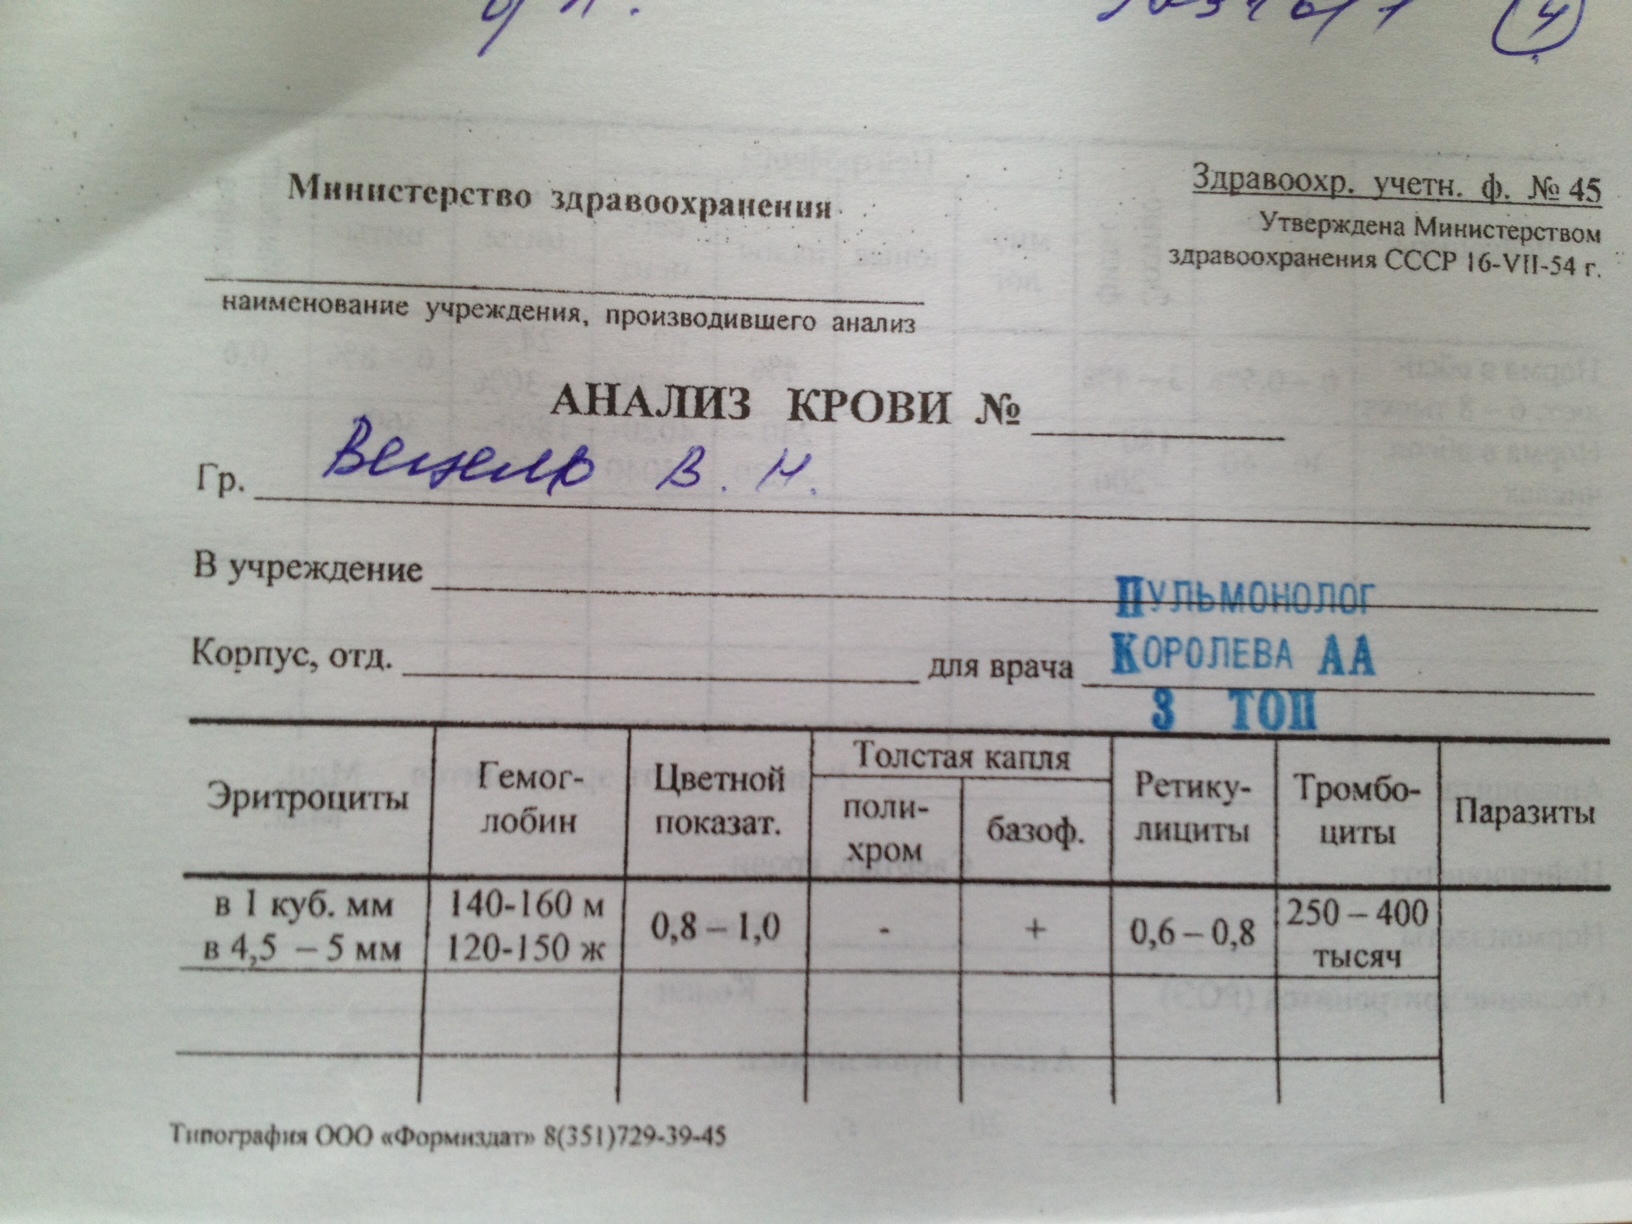 Министерство здравоохранения
наименование учреждения, производившего анализ
Здравоохр. учетн. ф. № 45
Утверждена Министерством
здравоохранения СССР 16-VII-54 г.
АНАЛИЗ КРОВИ №
Гр. В. Н.
В учреждение ПУЛЬМОНОЛОГ
Корпус, отд. для врача КОРОЛЕВА АА
3 ТОП
Эритроциты Гемог-лобин Цветной показат. Толстая капля поли-хром базоф. Ретику-лициты Тромбо-циты Паразиты
в 1 куб. мм 140-160 м 0,8 – 1,0 - + 0,6 – 0,8 250 – 400
в 4,5 – 5 мм 120-150 ж тысяч
Типография ООО «Формиздат» 8(351)729-39-45